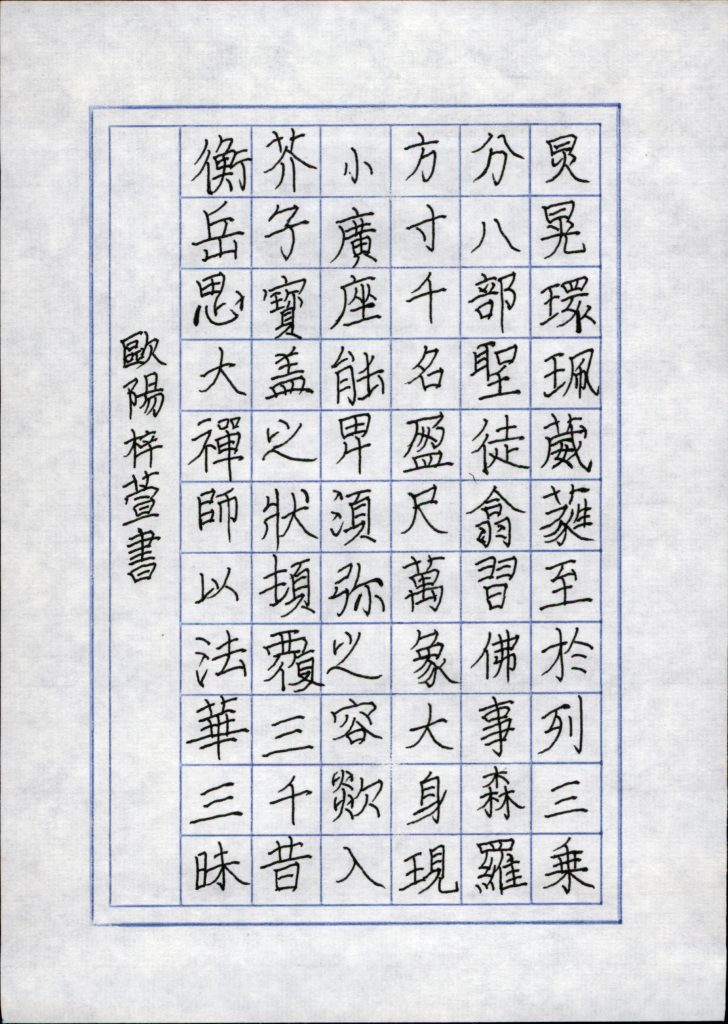 炅晃環珮葳蕤至於列三乗
分八部聖徒翕習佛事森羅
方寸千名盈尺萬象大身現
小廣座能卑湏弥之容欻入
芥子寶盖之狀頓覆三千昔
衡岳思大禪師以法華三昧
歐陽梓萱書